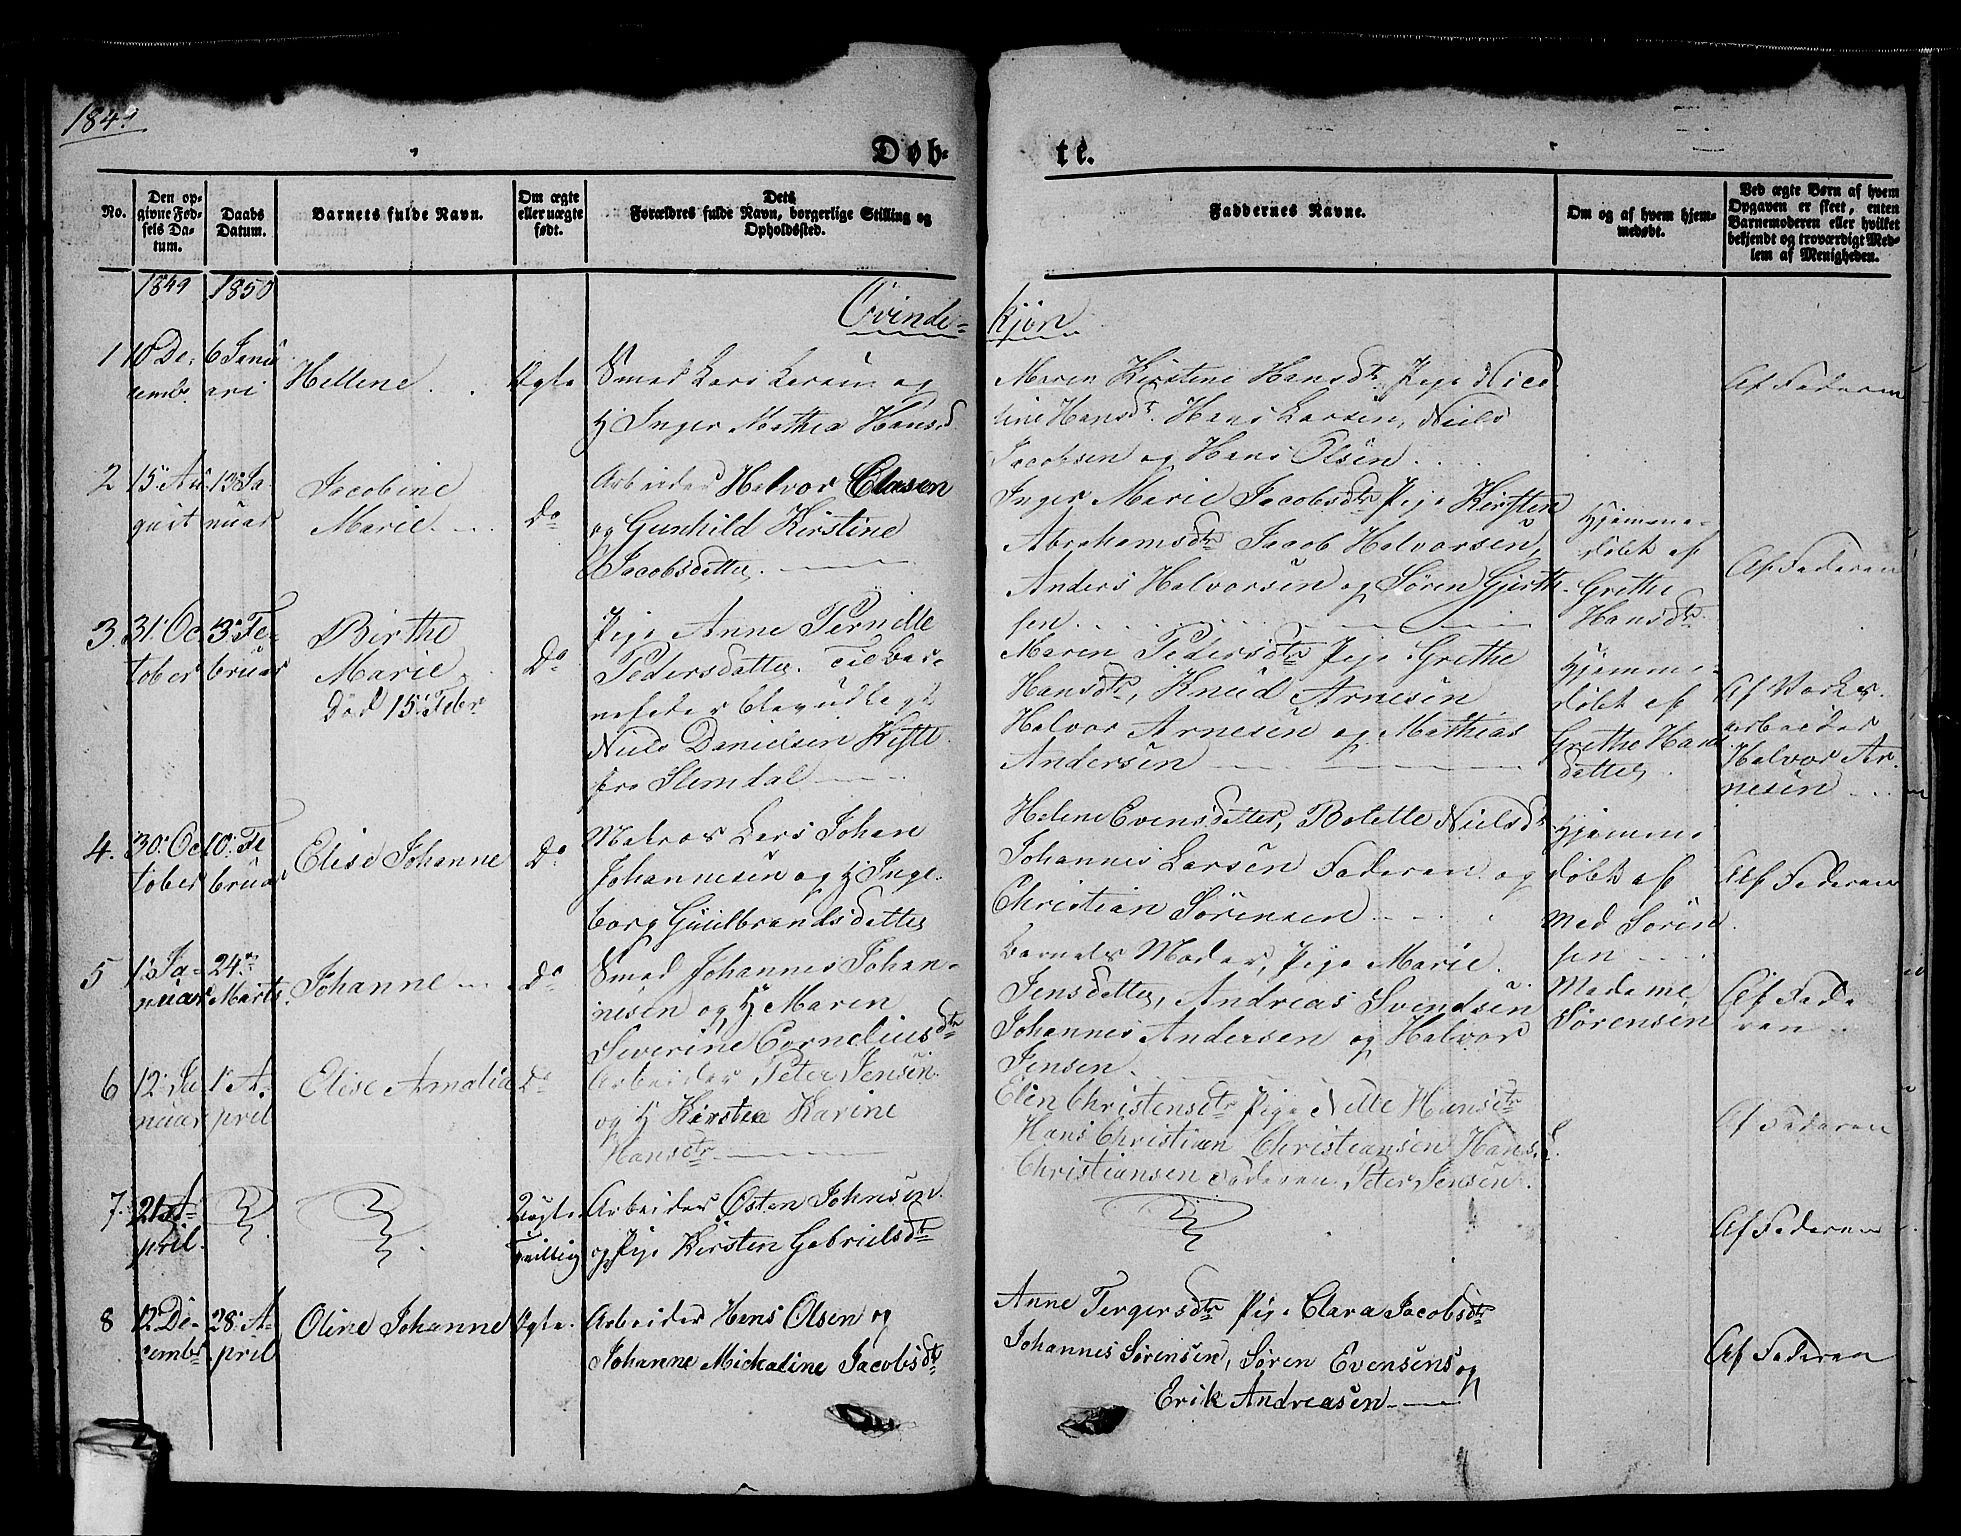 1849
Døb-
te.
No.
Den op-
givne Fød-
sels Da-
tum.
Daabs
Datum.
Barnets fulde Navn.
Om ægte
eller uægte
født.
Dets
Forældres fulde Navn, borgerlige Stilling og
Opholdssted.
Faddernes Navne.
Om og af hvem hjem-
medøbt.
Ved ægte Børn af hvem
Opgaven er skeet, enten
Barnemoderen eller hvilket
bekjendt og troværdigt Med-
lem af Menigheden.
1849
1850
Qvinde-
kjøn
1
10 De-
cembr
6 Janu
ari
Hellene
Ægte
Smed Lars Larsen og
H Inger Mathea Hansd
Maren Kirstine Hansdtr Pige Nico
line Hansdt. Hans Larsen, Niels
Jacobsen og Hans Olsen
Af Faderen
2
15 Au
gust
13 Ja
nuar
Jacobine
Marie
Do
Arbeider Halvor Clasen
og Gunhild Kirstine
Jacobsdatter
Inger Marie Jacobsdtr Pige Kirsten
Abrahamsdtr Jacob Halvorsen,
Anders Halvorsen og Søren Gjerth-
sen
Hjemme-
døbt af
Grethe
Hansdtr
Af Faderen
3.
31 Oc
tober
3 Fe-
bruar
Birthe
Marie
Død 15 Febr
Do
Pige Anne Pernille
Pedersdatter. Til Bar-
nefader blev udlagt
Niels Danielsen Kifte
fra Slemdal
Maren Pedersdtr Pige Grethe
Hansdtr, Knud Arnesen
Halvor Arnesen og Mathias
Andersen
Hjemme-
døbt af
Grethe Hans
datter
Af Værks-
arbeider
Halvor Ar-
nesen
4.
30 Oc
tober
10 Fe
bruar
Elise Johanne
Do
Matros Lars Johan
Johannesen og H Inge-
borg Gulbrandsdatter
Helene Evensdatter, Bolette Nielsdr
Johannes Larsen Faderen og
Christian Sørensen
Hjemme
døbt af
Mad Søren
sen
Af Faderen
5
1 Ja-
nuar
24
Marts
Johanne
Do
Smed Johannes Johan-
nesen og H Maren
Severine Corneliusdtr
Barnets Moder, Pige Marie
Jensdatter, Andreas Svendsen
Johannes Andersen og Halvor
Jensen
Madame
Sørensen
Af Fade
ren
6
12 Ja
nuar
1 A
pril
Elise Amalia
Do
Arbeider Peter Jensen
og H Kirstea Karine
Hansdtr
Elen Christensdtr Pige Nille Hansdtr
Hans Christian Christiansen Hans
Christiansen Faderen Peter Jensen.
Af Faderen
7.
21 A-
pril
Uægte
Arbeider Østen Johnsen
og Pige Kirsten Gabrielsdtr
Af Faderen
8
12 De-
cembr
28 A-
pril
Oline Johanne
Ægte.
Arbeider Hans Olsen og
Johanne Michaline Jacobsdtr
Anne Tergersdtr Pige Clara Jacobsdtr
Johannes Sørensen, Søren Evensens og
Erik Andreasen
Af Faderen